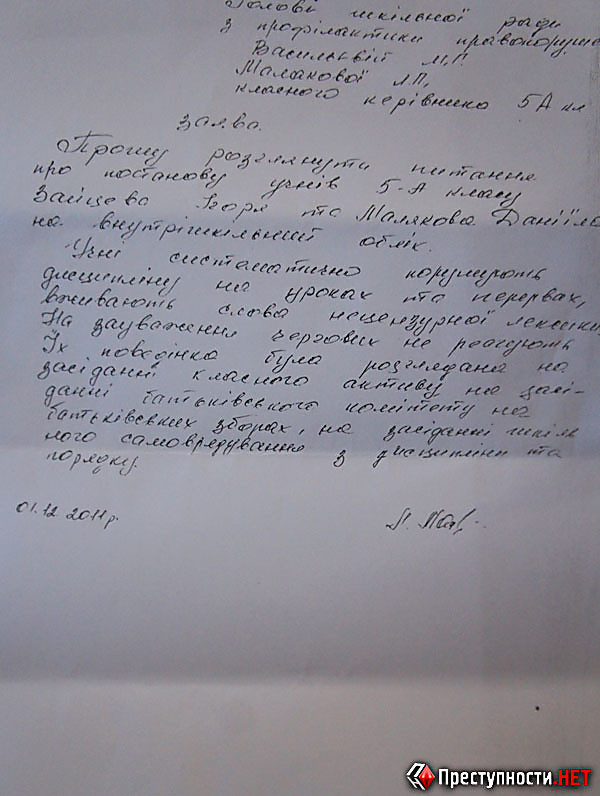 Голові шкільної ради
з профілактики правопоруше
Васильєвій М.Г.
Малахової Л.П,
класного керівника 5А кл
заява.
Прошу розглянути питання
про постанову учнів 5-А класу
Зайцева Ігоря та Малякова Даніїла
на внутрішкільний облік.
Учні систематично порушують
дисципліну на уроках та перервах,
вживають слова нецензурної лексики.
На зауваження чергових не реагують
Їх поведінка була розглядана на
засіданні класного активу на засі-
данні батьківського комітету на
батьківських зборах, на засіданні шкіль
ного самоврядування з дисципліни та
порядку.
01.12.2011р.
Преступности.НЕТ